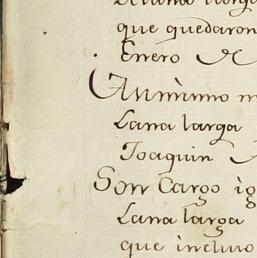 Lana larga
que quedaron
Enero
Asimismo
Lana larga
Joaquin
Son Cargo
Lana larga
que incluio